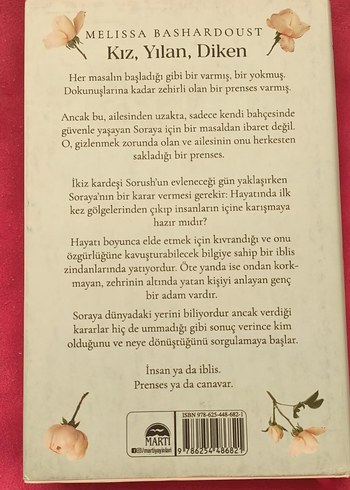 MELISSA BASHARDOUST
Kız, Yılan, Diken
Her masalın başladığı gibi bir varmış, bir yokmuş.
Dokunuşlarına kadar zehirli olan bir prenses varmış.
Ancak bu, ailesinden uzakta, sadece kendi bahçesinde
güvenle yaşayan Soraya için bir masaldan ibaret değil.
O, gizlenmek zorunda olan ve ailesinin onu herkesten
sakladığı bir prenses.
İkiz kardeşi Sorush'un evleneceği gün yaklaşırken
Soraya'nın bir karar vermesi gerekir: Hayatında ilk
kez gölgelerinden çıkıp insanların içine karışmaya
hazır mıdır?
Hayatı boyunca elde etmek için kıvrandığı ve onu
özgürlüğüne kavuşturabilecek bilgiye sahip bir iblis
zindanlarında yatıyordur. Öte yanda ise ondan kork-
mayan, zehrinin altında yatan kişiyi anlayan genç
bir adam vardır.
Soraya dünyadaki yerini biliyordur ancak verdiği
kararlar hiç de ummadığı gibi sonuç verince kim
olduğunu ve neye dönüştüğünü sorgulamaya başlar.
İnsan ya da iblis.
Prenses ya da canavar.
MARTI
/martiyayinlari
ISBN 978-625-448-682-1
9 786254 486821